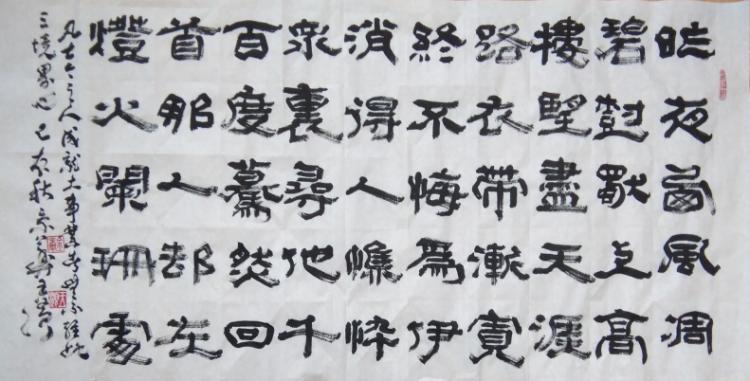 昨夜西風凋
碧樹獨上高
樓望盡天涯
路衣帶漸寬
終不悔爲伊
消得人憔悴
衆裏尋他千
百度驀然回
首那人卻在
燈火闌珊處
凡古今之人成就大事業者無不經此
三境界也己亥秋